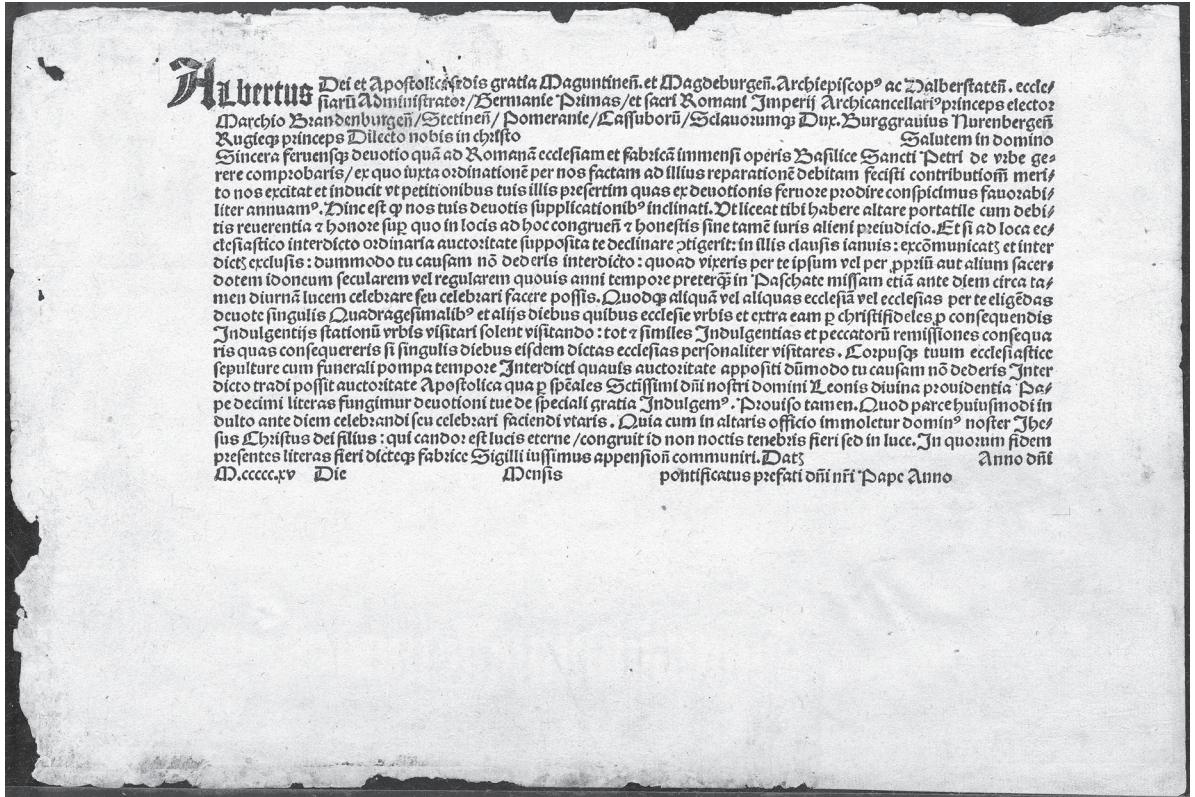 Albertus Dei et Apostolice sedis gratia Maguntineñ. et Magdeburgeñ. Archiepiscopꝰ ac Halberstateñ. eccle⸗
siarũ Administrator/Germanie Primas/et sacri Romani Imperij Archicancellariꝰ princeps elector
Marchio Brandenburgeñ/Stetineñ/Pomeranie/Cassuborũ/Sclauorumqꝫ Dux. Burggrauius Nurenbergeñ
Rugieqꝫ princeps Dilecto nobis in christo Salutem in domino
Sincera feruensqꝫ deuotio quã ad Romanã ecclesiam et fabricã immensi operis Basilice Sancti Petri de vrbe ge⸗
rere comprobaris/ex quo iuxta ordinationẽ per nos factam ad illius reparationẽ debitam fecisti contributioñ meri⸗
to nos excitat et inducit vt petitionibus tuis illis presertim quas ex deuotionis feruore prodire conspicimus fauorabi⸗
liter annuamꝰ. Hinc est ꝙ nos tuis deuotis supplicationibꝰ inclinati. Vt liceat tibi habere altare portatile cum debi⸗
tis reuerentia ⁊ honore suꝑ quo in locis ad hoc congrueñ ⁊ honestis sine tamẽ iuris alieni preiudicio. Et si ad loca ec⸗
clesiastico interdicto ordinaria auctoritate supposita te declinare ꝯtigerit: in illis clausis ianuis: excõmunicatꝫ et inter
dictꝫ exclusis: dummodo tu causam nõ dederis interdicto: quoad vixeris per te ipsum vel per ꝓpriũ aut alium sacer⸗
dotem idoneum secularem vel regularem quouis anni tempore preterꝙ̃ in Paschate missam etiã ante diem circa ta⸗
men diurnã lucem celebrare seu celebrari facere possis. Quodqꝫ aliquã vel aliquas ecclesiã vel ecclesias per te eligẽdas
deuote singulis Quadragesimalibꝰ et alijs diebus quibus ecclesie vrbis et extra eam ꝑ christifideles ꝓ consequendis
Indulgentijs stationũ vrbis visitari solent visitando: tot ⁊ similes Indulgentias et peccatorũ remissiones consequa
ris quas consequereris si singulis diebus eisdem dictas ecclesias personaliter visitares. Corpusqꝫ tuum ecclesiastice
sepulture cum funerali pompa tempore Interdicti quauis auctoritate appositi dũmodo tu causam nõ dederis Inter
dicto tradi possit auctoritate Apostolica qua ꝑ spẽales Sctissimi dñi nostri domini Leonis diuina prouidentia Pa⸗
pe decimi literas fungimur deuotioni tue de speciali gratia Indulgemꝰ. Prouiso tamen. Quod parce huiusmodi in
dulto ante diem celebrandi seu celebrari faciendi vtaris. Quia cum in altaris officio immoletur dominꝰ noster Jhe⸗
sus Christus dei filius: qui candor est lucis eterne/congruit id non noctis tenebris fieri sed in luce. In quorum fidem
presentes literas fieri dicteqꝫ fabrice Sigilli iussimus appensioñ communiri. Datꝫ Anno dñi
M.ccccc.xv Die Mensis pontificatus prefati dñi nr̃i Pape Anno